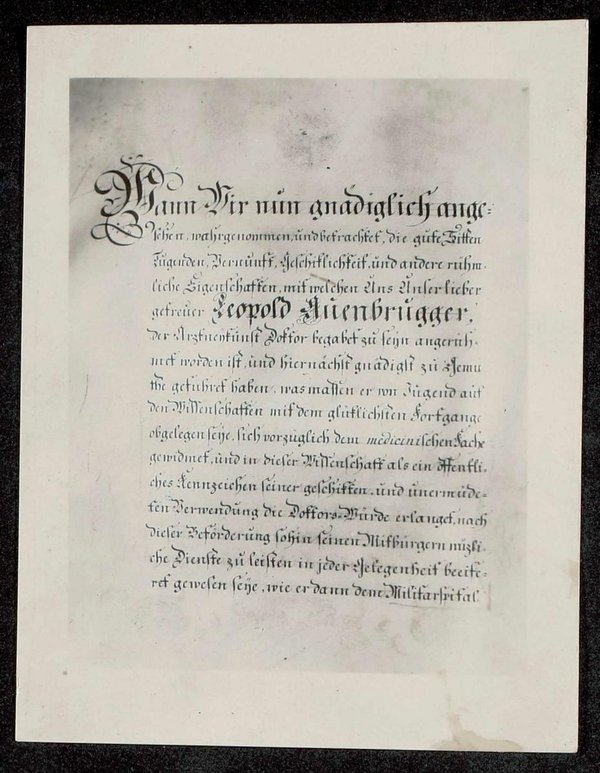 Wann Wir nun gnädiglich ange-
sehen, wahrgenommen, und betrachtet, die gute Sitten
Tugenden, Vernunft, Geschiklichkeit, und andere rühm-
liche Eigenschaften, mit welchen Uns Unser lieber
getreuer Leopold Auenbrugger,
der Arztneykunst Doktor begabet zu seyn angerüh-
met worden ist, und hiernächst gnädigst zu Gemü
the geführet haben, was massen er von Jugend auf
den Wissenschaften mit dem glüklichsten Fortgange
obgelegen seye, sich vorzüglich dem medicinischen Fache
gewidmet, und in dieser Wissenschaft als ein öffentli-
ches Kennzeichen seiner geschikten, und unermüde-
ten Verwendung die Doktors-Würde erlanget, nach
dieser Beförderung sohin seinen Mitbürgern nüzli-
che Dienste zu leisten in jeder Gelegenheit beeife-
ret gewesen seye, wie er dann dem Militarspital